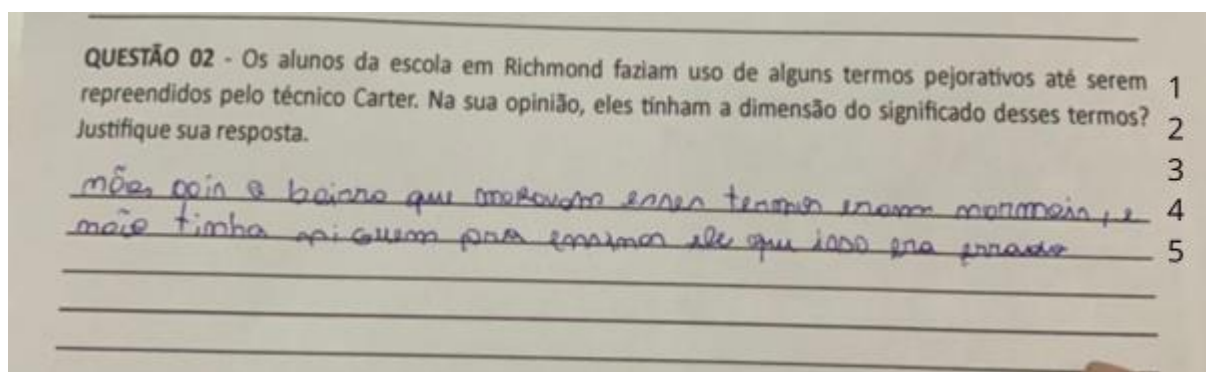 QUESTÃO 02 - Os alunos da escola em Richmond faziam uso de alguns termos pejorativos até serem 1
repreendidos pelo técnico Carter. Na sua opinião, eles tinham a dimensão do significado desses termos? 2
Justifique sua resposta.
3
não, pois o bairro que moravam esses termos eram normais, e 4
não tinha niguem pra ensinar ele que isso era errado 5